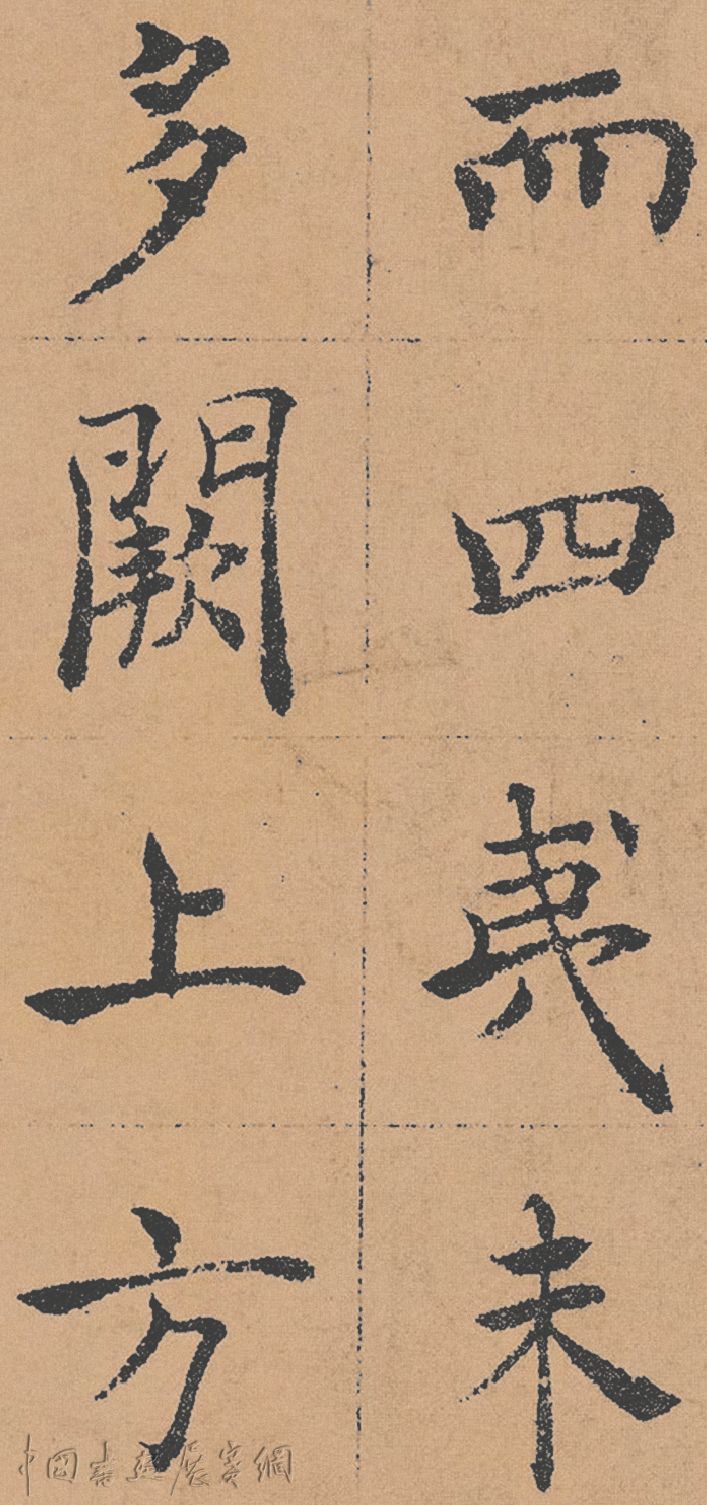 而四夷未
多闕上方
中国書畫展賽網